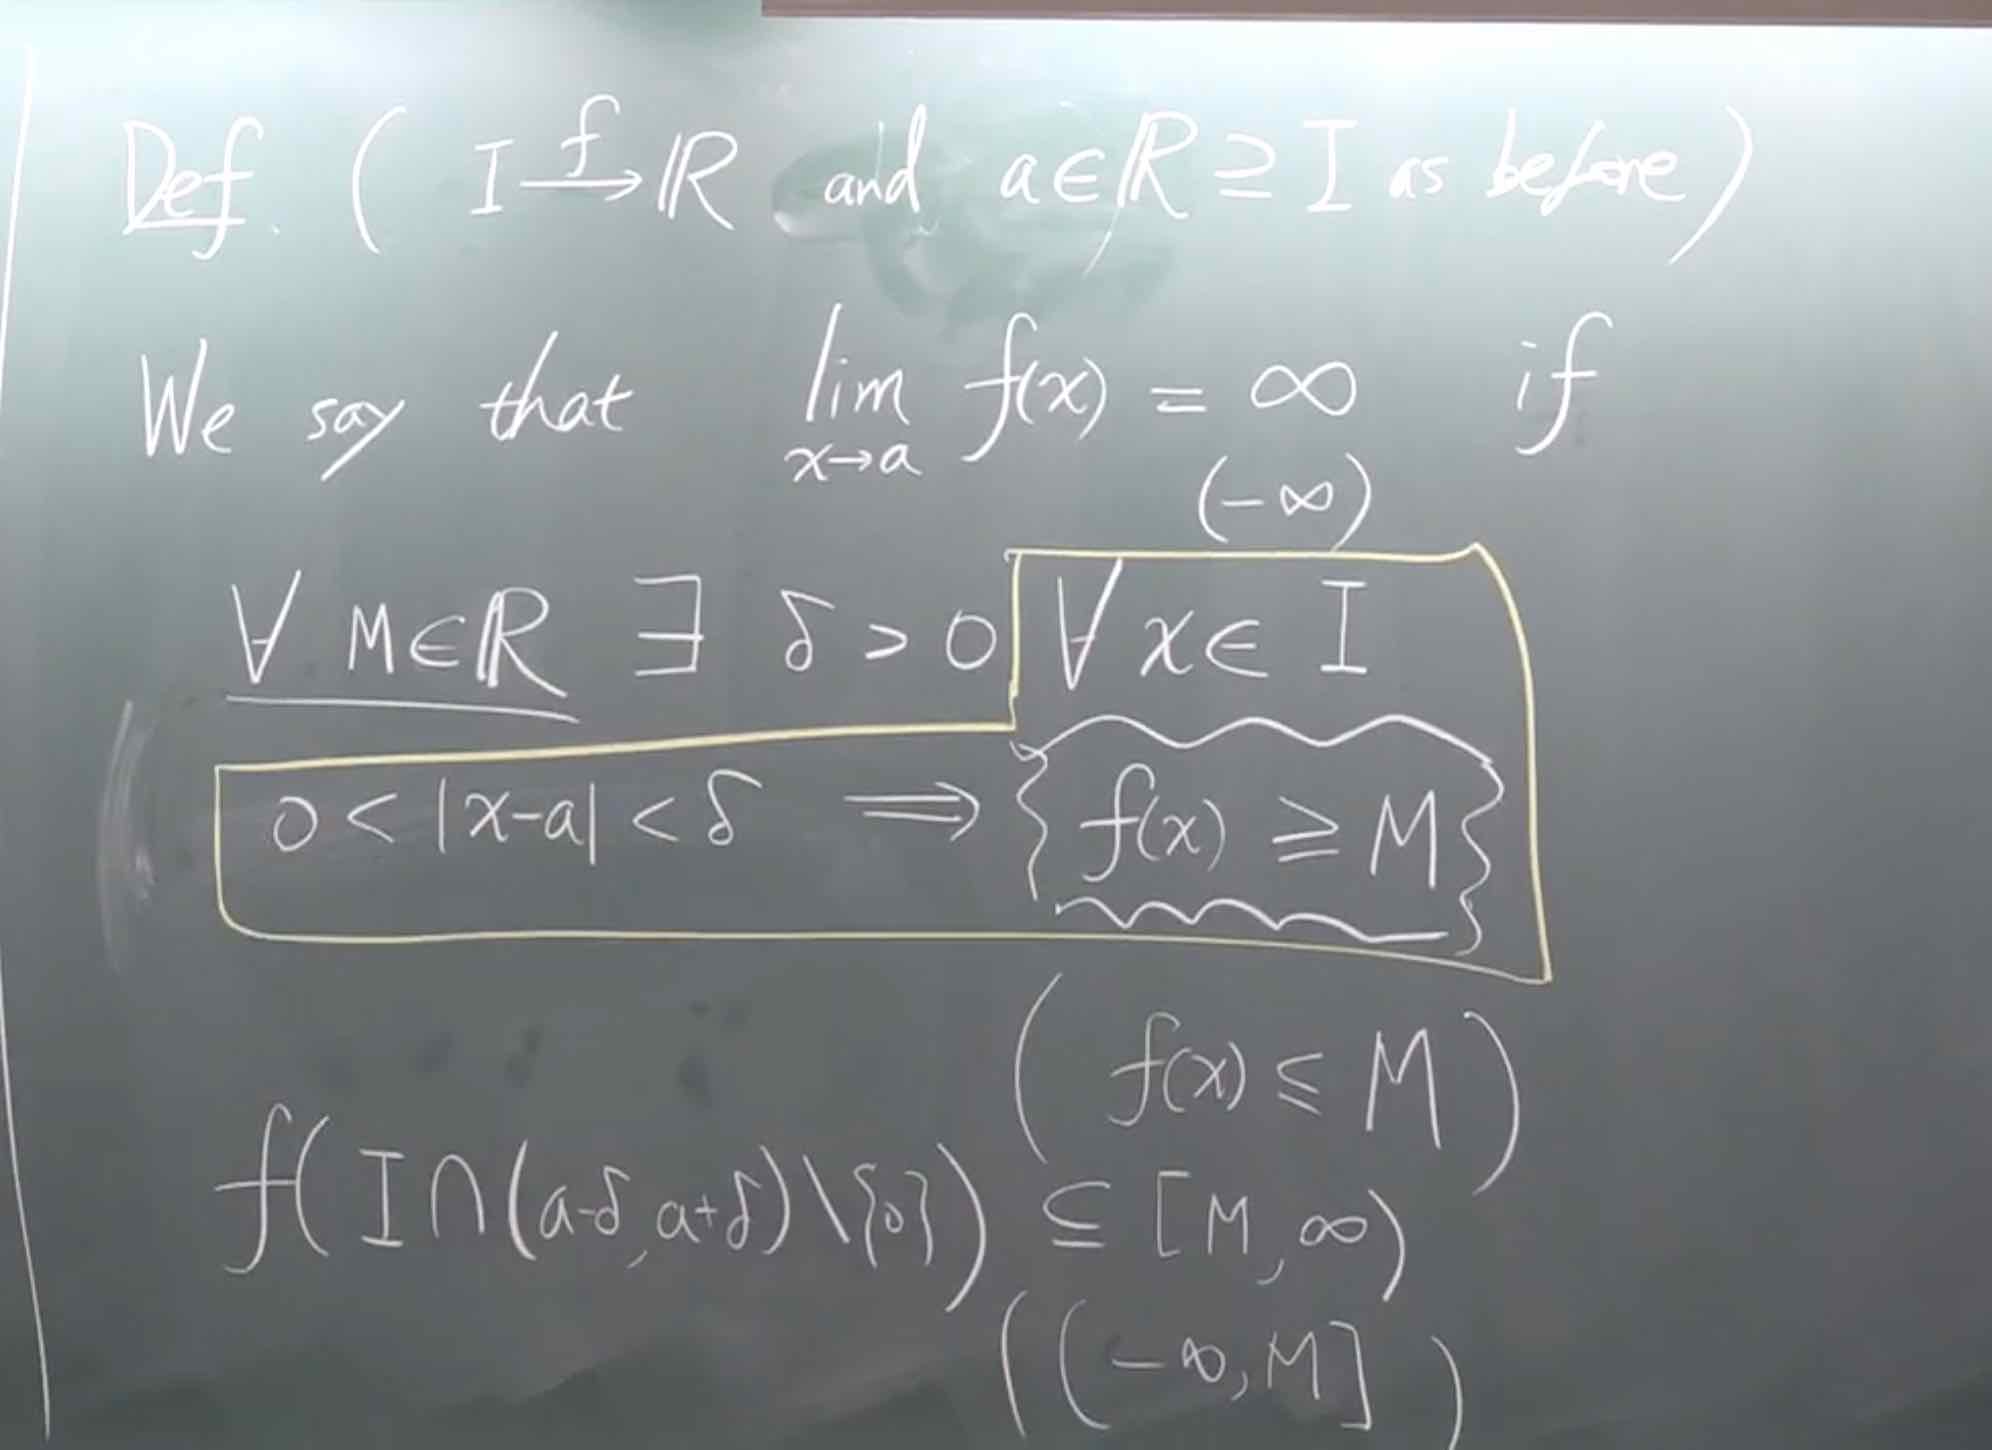 Def. ( I —f→ ℝ and a∈ℝ ⊇ I as before )
We say that lim f(x) = ∞ if
x→a (-∞)
∀ M∈ℝ ∃ δ > 0 ∀ x∈ I
0 < |x-a| < δ ⟹ { f(x) ≥ M }
( f(x) ≤ M )
f( I∩(a-δ, a+δ) \ {0} ) ⊆ [M, ∞)
( (-∞, M] )